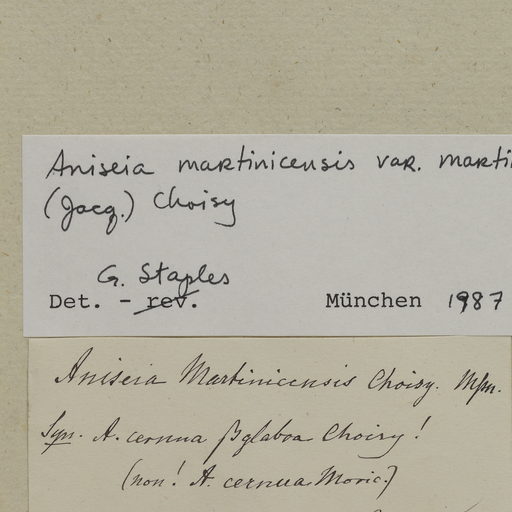 Aniseia martinicensis var. marti
(Jacq.) Choisy
G. Staples
Det. - rev. München 1987
Aniseia Martinicensis Choisy.
Syn. A. cernua β glabra Choisy!
(non! A. cernua Moric.)